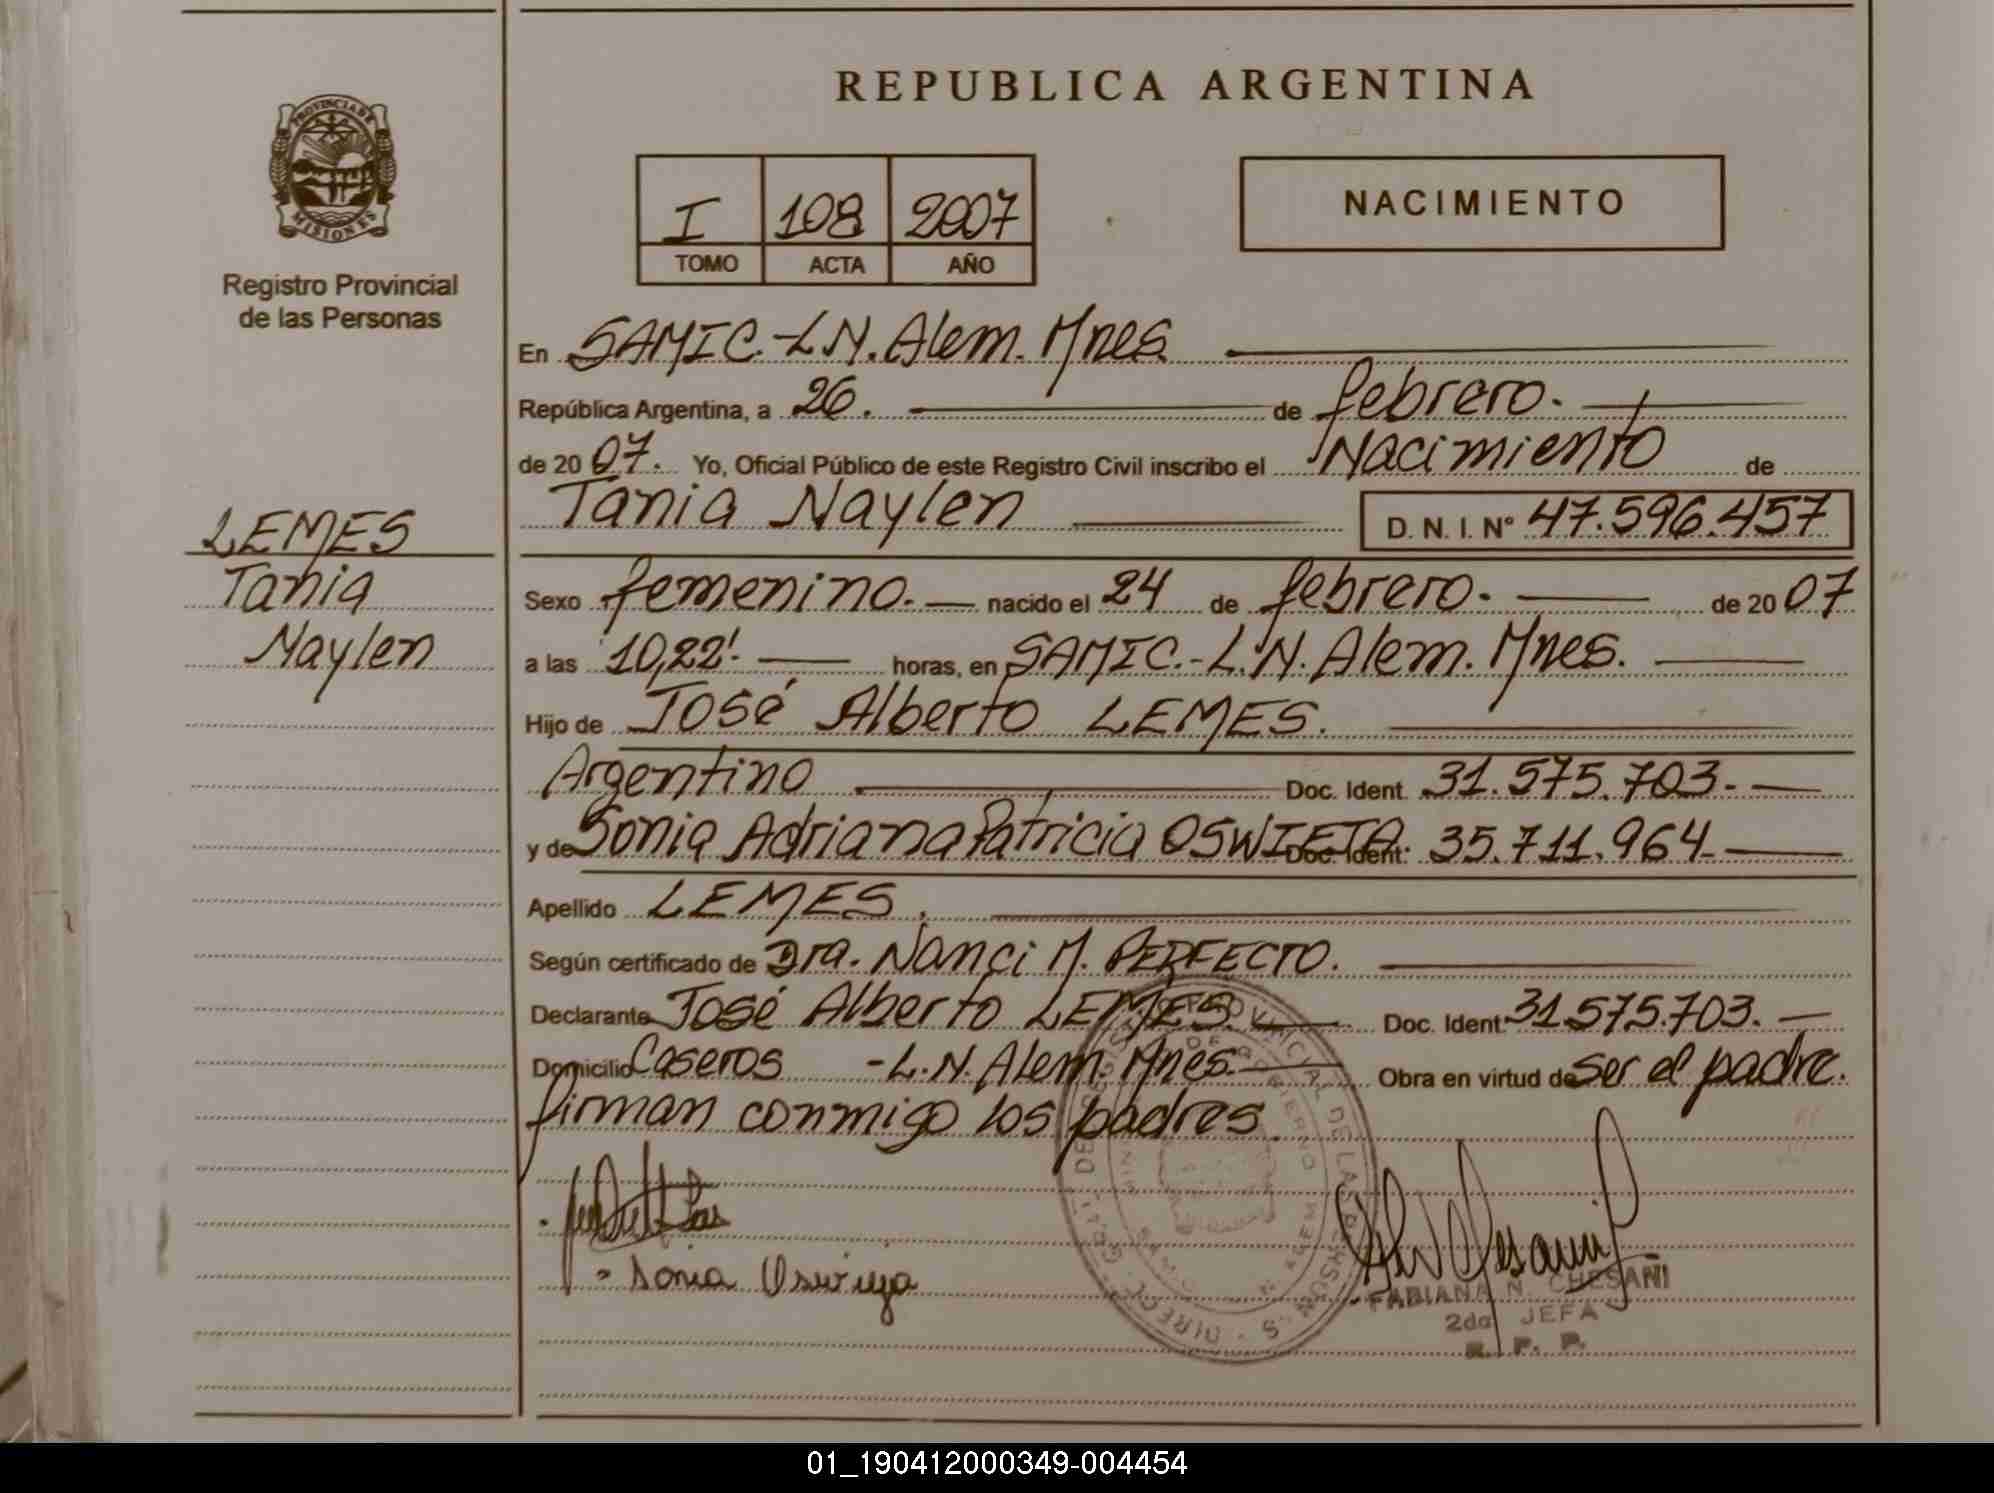 REPUBLICA ARGENTINA
PROVINCIA DE
MISIONES
Registro Provincial
de las Personas
I 108 2007
TOMO ACTA AÑO
NACIMIENTO
En SAMIC.-L.N.Alem.Mnes
República Argentina, a 26. de febrero.
de 2007. Yo, Oficial Público de este Registro Civil inscribo el Nacimiento de
Tania Naylen D. N. I. Nº 47.596.457
LEMES
Tania
Naylen
Sexo femenino. nacido el 24 de febrero. de 2007
a las 10,22'. horas, en SAMIC.-L.N.Alem.Mnes.
Hijo de José Alberto LEMES.
Argentino Doc. Ident. 31.575.703.
y de Sonia Adriana Patricia OSWIEJA. Doc. Ident: 35.711.964
Apellido LEMES.
Según certificado de Dra. Nanci M. PERFECTO.
Declarante José Alberto LEMES. Doc. Ident: 31.575.703.
Domicilio Caseros -L.N.Alem.Mnes. Obra en virtud de ser el padre.
firman conmigo los padres.
Sonia
FABIANA N. CHESANI
2da JEFA
R. P. P.
01_190412000349-004454